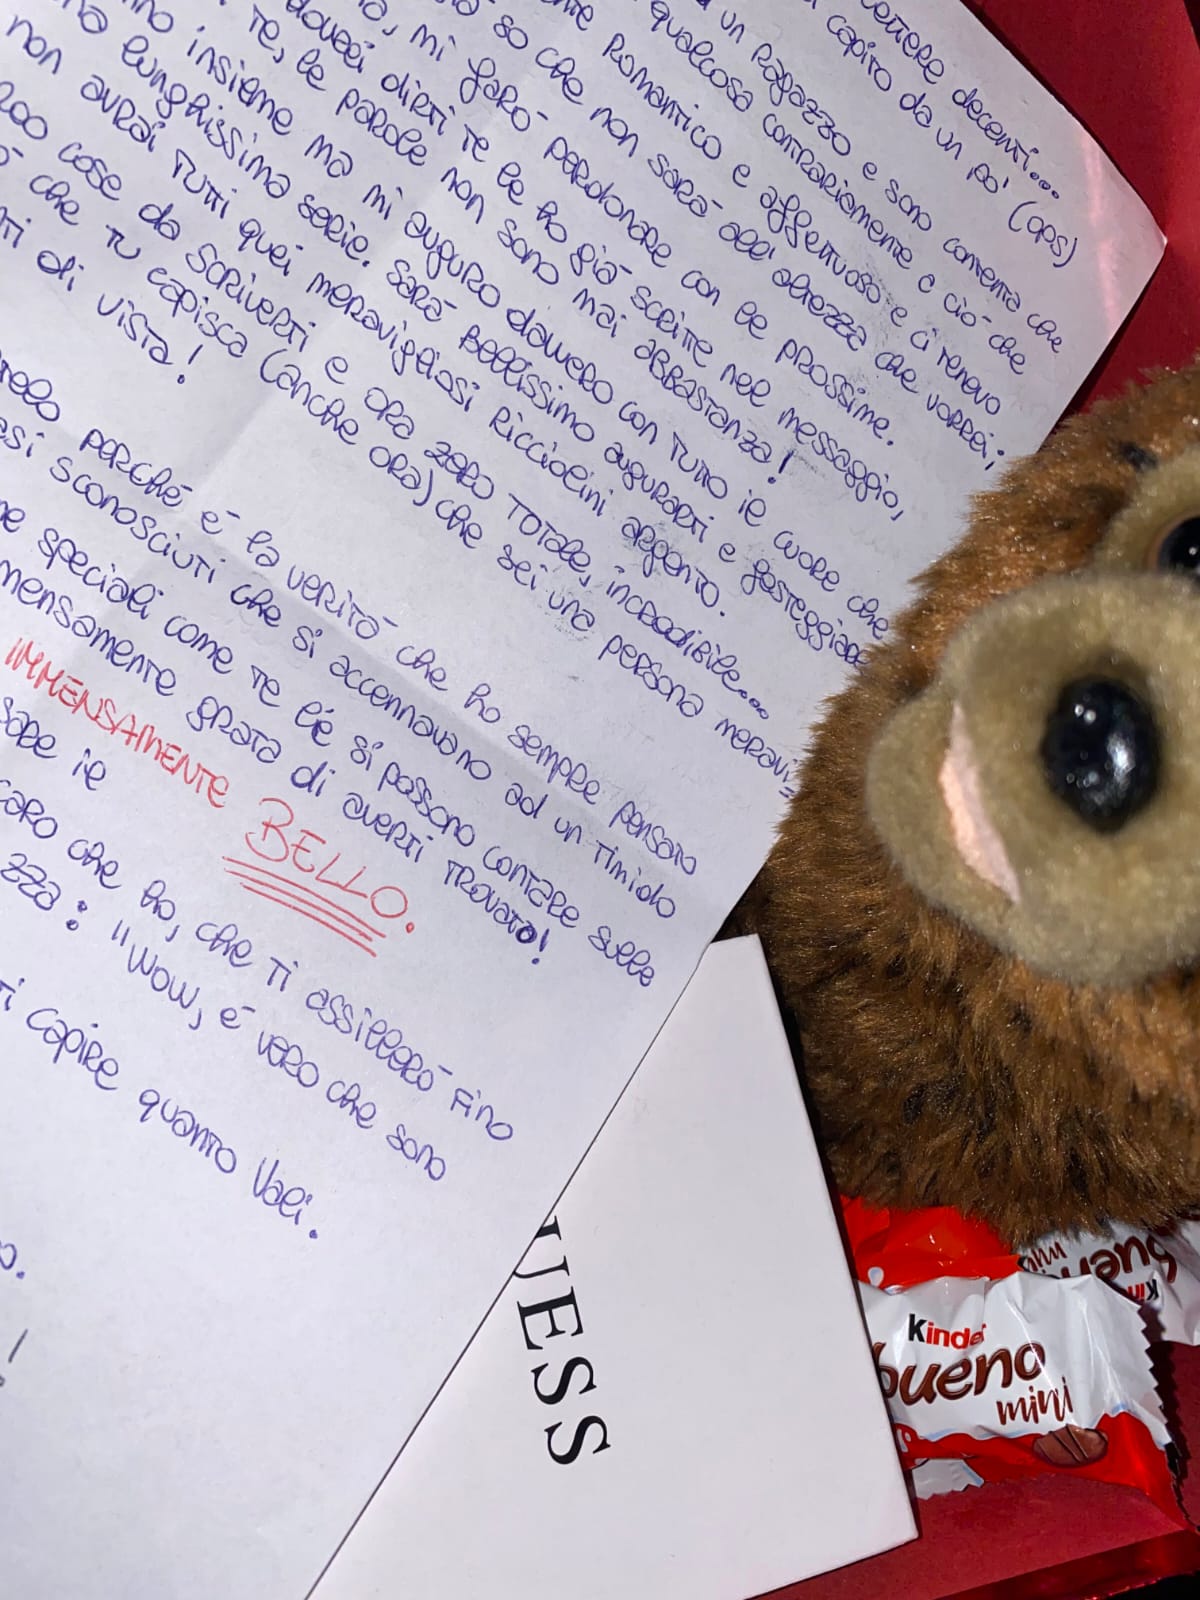 lettere decenti...
capito da un po' (ops)
un ragazzo e sono contenta che
qualcosa contrariamente a ciò che
romantico e affettuoso e ci tenevo
so che non sarà all'altezza che vorrei;
mi farò perdonare con le prossime.
dovrei dirti te le ho già scritte nel messaggio,
te, le parole non sono mai abbastanza!
insieme ma mi auguro davvero con tutto il cuore che
lunghissima serie. sarà bellissimo augurarti e festeggiare
non avrai tutti quei meravigliosi ricciolini argento.
200 cose da scriverti e ora zero totale, incredibile...
che tu capisca (anche ora) che sei una persona meravi=
di vista!
perché é la verità che ho sempre pensato
sconosciuti che si accennavano ad un timido
speciali come te si possono contare sulle
mensamente grata di averti trovato!
IMMENSAMENTE BELLO.
caro che ho, che ti assillerò fino
zza: "Wow, é vero che sono
ti capire quanto vali.
UESS
kinder
bueno
mini
kinder
bueno
mini